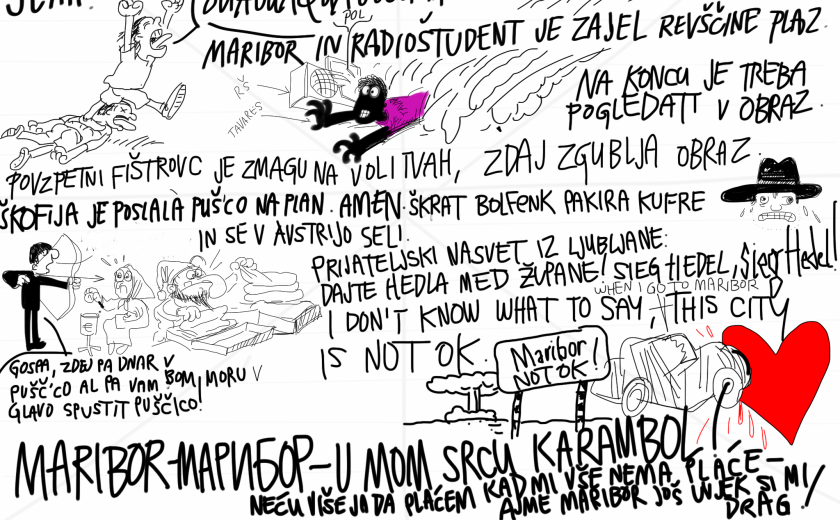 POL
MARIBOR IN RADIOŠTUDENT JE ZAJEL REVŠČINE PLAZ.
RŠ
TAVARES
NA KONCU JE TREBA
POGLEDATI V OBRAZ.
POVZPETNI FIŠTROVC JE ZMAGU NA VOLITVAH, ZDAJ ZGUBLJA OBRAZ.
ŠKOFIJA JE POSLALA PUŠ'CO NA PLAN. AMEN. ŠKRAT BOLFENK PAKIRA KUFRE
IN SE V AVSTRIJO SELI.
PRIJATELJSKI NASVET IZ LJUBLJANE:
DAJTE HEDLA MED ŽUPANE! SIEG HEDEL, Sieg Hedel!
WHEN I GO TO MARIBOR
I DON'T KNOW WHAT TO SAY, THIS CITY
IS NOT OK.
Maribor
NOT OK!
GOSPA, ZDEJ PA DNAR V
PUŠČ'CO AL PA VAM BOM MORU V
GLAVO SPUSTIT PUŠČICO!
MARIBOR-МАРИБОР-U MOM SRCU KARAMBOL!
NEĆU VIŠE JA DA PLAĆEM KAD MI VŠE NEMA PLAĆE-
AJME MARIBOR JOŠ UVJEK SI MI
DRAG!